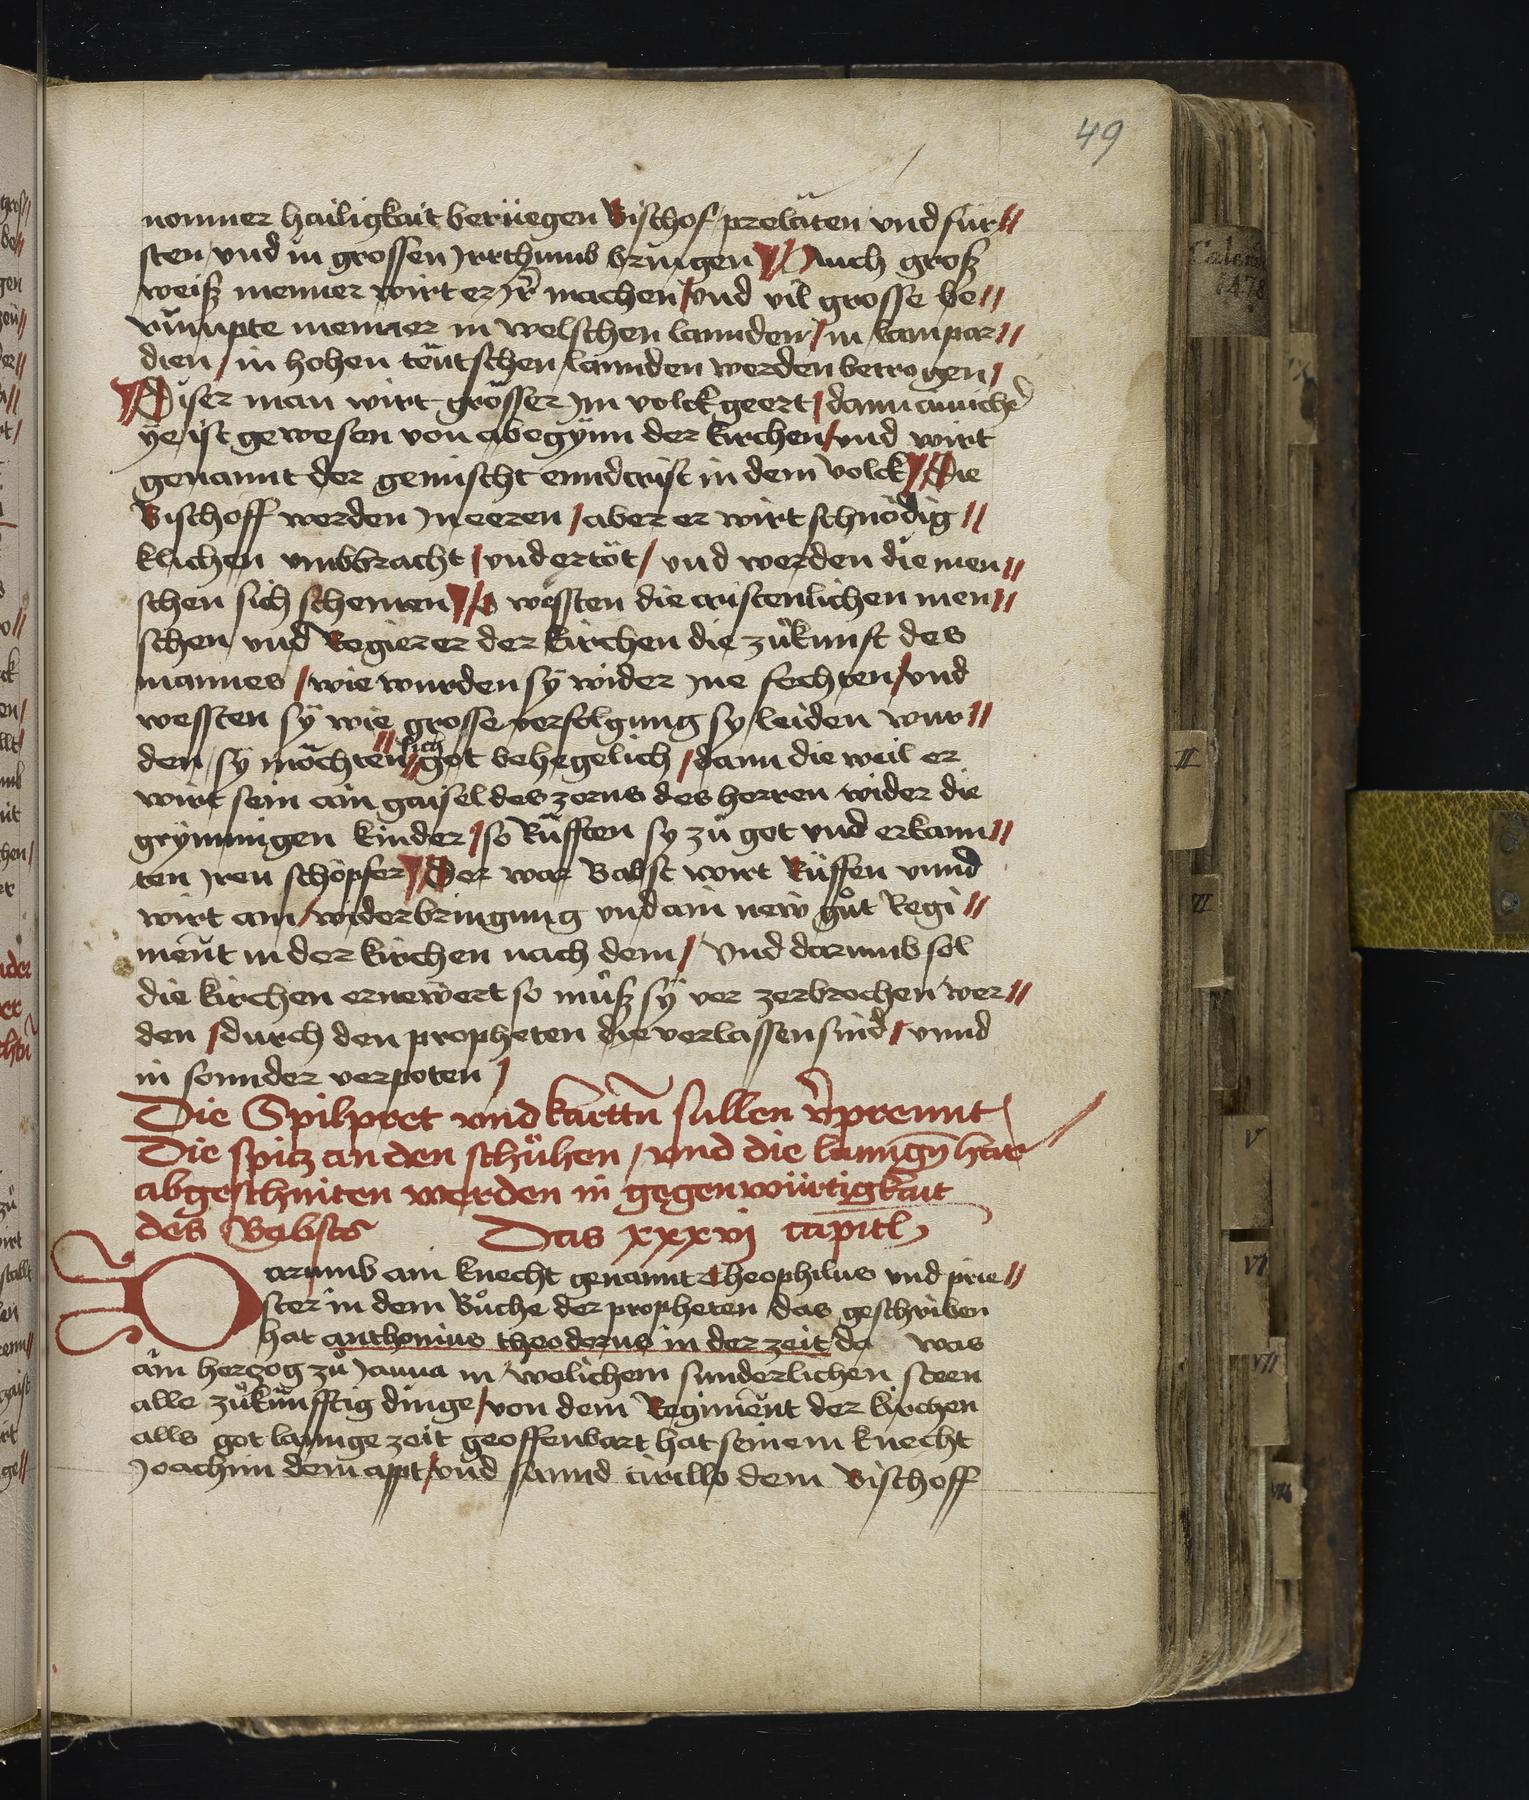 49
nomner hailigkait berüegen Bischof prelaten vnd für//
sten vnd in grossen Irrthumb bringen // Auch groß
weiß menner wirt er Ir machen / vnd vil grosse be//
rümpte menner in welschen lannden / in lampar//
dien / in hohen teütschen lannden werden betrogen /
Diser man wirt grösser Im volck geert / dann
ye ist gewesen von abegynn der kirchen / vnd wirt
genannt der gemischt enndcrist in dem volck // Die
Bischoff werden In eeren / aber er wirt schnödig //
klichen vmbbracht / vnd ertöt / vnd werden die men//
schen sich schemen // O wessten die cristenlichen men//
schen vnd Regierer der kirchen die zůkunft des
mannes / wie wurden sÿ wider Ine fechten / vnd
wessten sÿ wie grosse verfolgung sy leiden wur//
den sy möchten // sich // got behegelich / dann die weil er
wirt sein ain gaisel des zorns des herren wider die
grymmigen kinder / so Rüfften sy zů got vnd erkann//
ten Iren schöpfer // Der war Babst wirt Rüffen vnnd
wirt ain widerbringung vnd ain new gůt Regi //
ment in der kirchen nach dem / Vnd darumb sol
die kirchen ernewert so můß sÿ vor zerbrochen wer//
den / durch den propheten die verlassen sind / vnnd
in sonnder verpoten /
Die Spilpret vnd karttn sullen v̄prennt /
Die spitz an den schůhen / vnd die lanngn har
abgeschniten werden in gegenwürtigkait
des Babsts Das xxxvj capitl
Darumb ain knecht genannt theophilus vnd prie//
ster in dem Bůche der propheten das geschriben
hat anthonius theodorus in der zeit da was
ain hertzog zů Janua in welichem sunderlichen steen
alle zůkünfftig dinge / von dem Regiment der kirchen
alls got lannge zeit geoffenbart hat seinem knecht
Joachim dem appt / vnd sannd cirillo dem Bischoff
1478
II
V
VI
VII